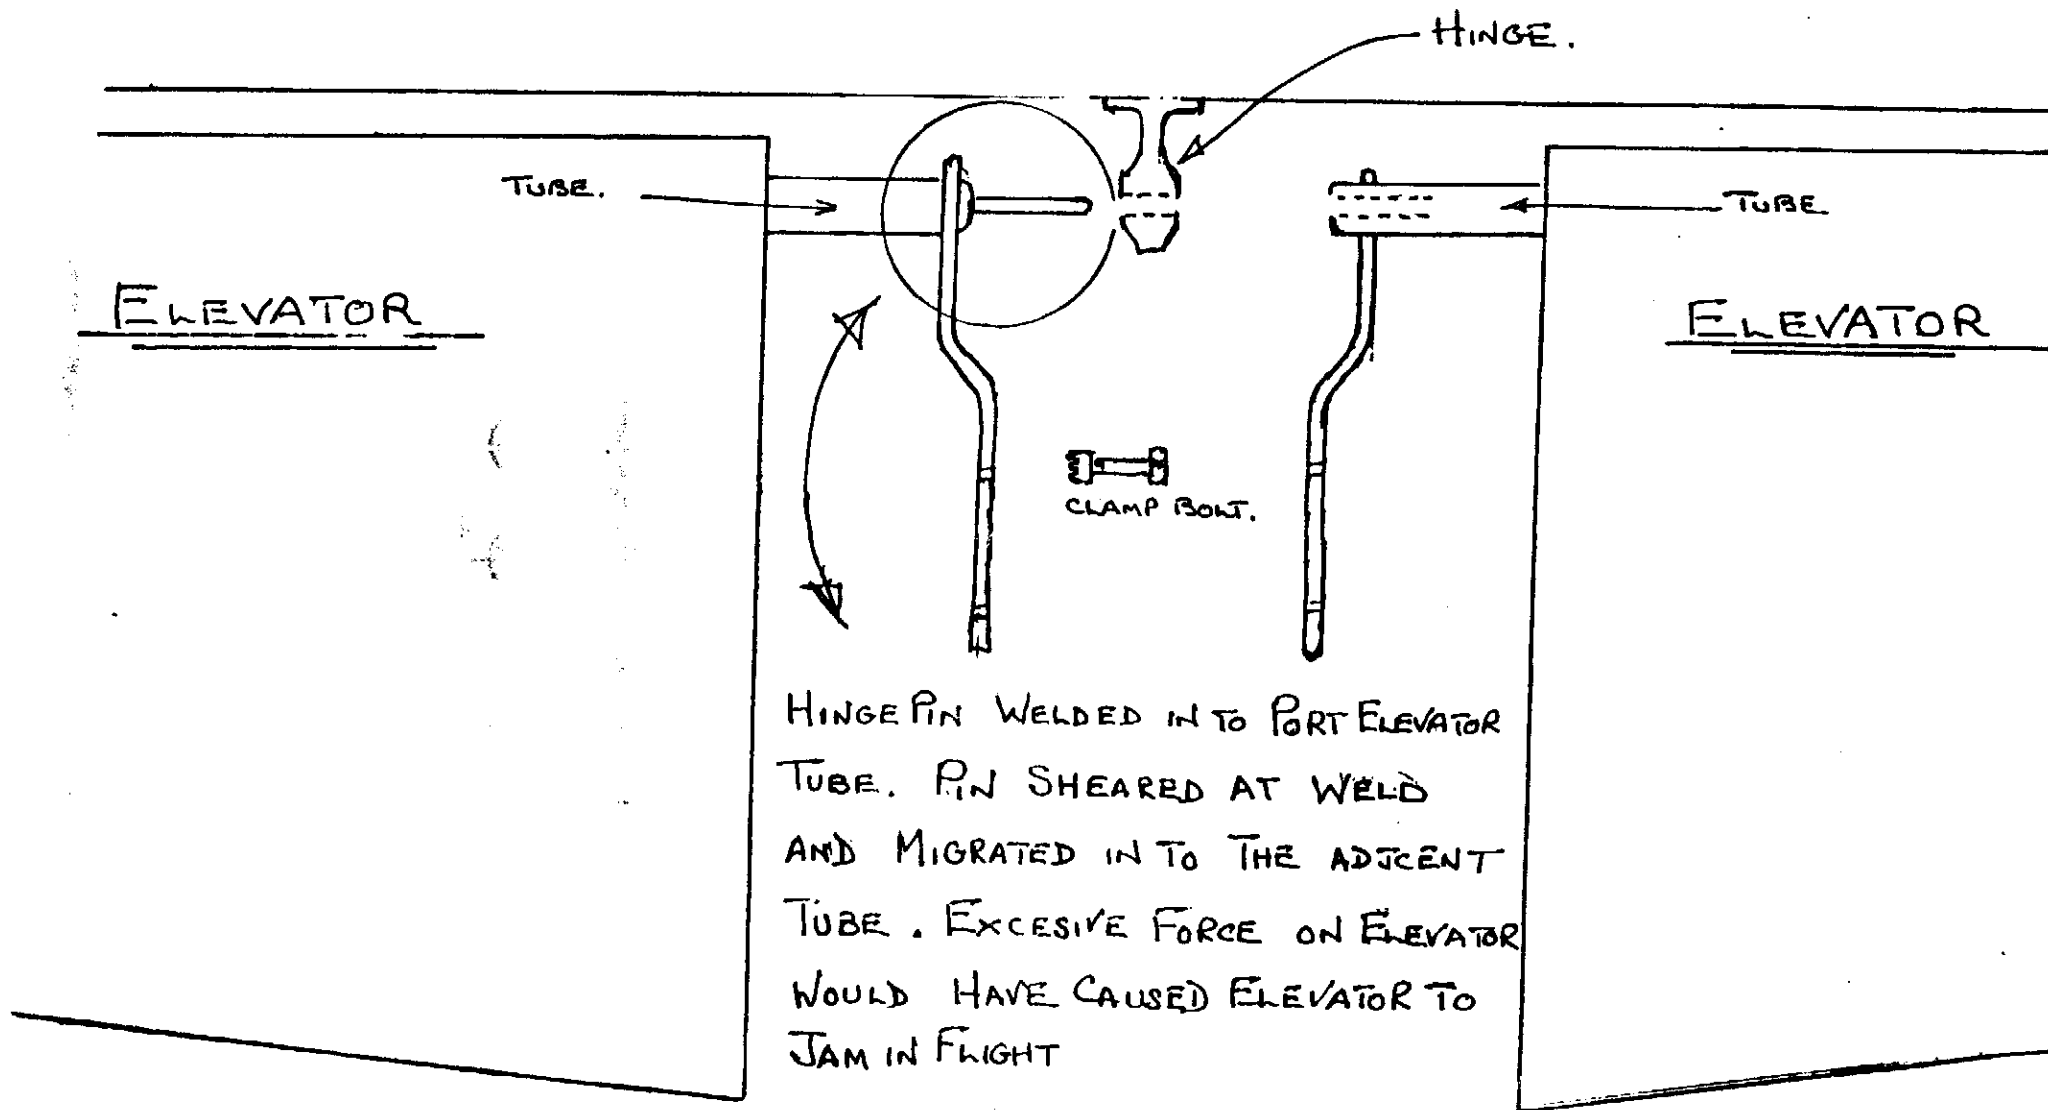 HINGE.
TUBE.
TUBE
ELEVATOR
ELEVATOR
CLAMP BOLT.
HINGE PIN WELDED IN TO PORT ELEVATOR
TUBE. PIN SHEARED AT WELD
AND MIGRATED IN TO THE ADJCENT
TUBE. EXCESIVE FORCE ON ELEVATOR
WOULD HAVE CAUSED ELEVATOR TO
JAM IN FLIGHT